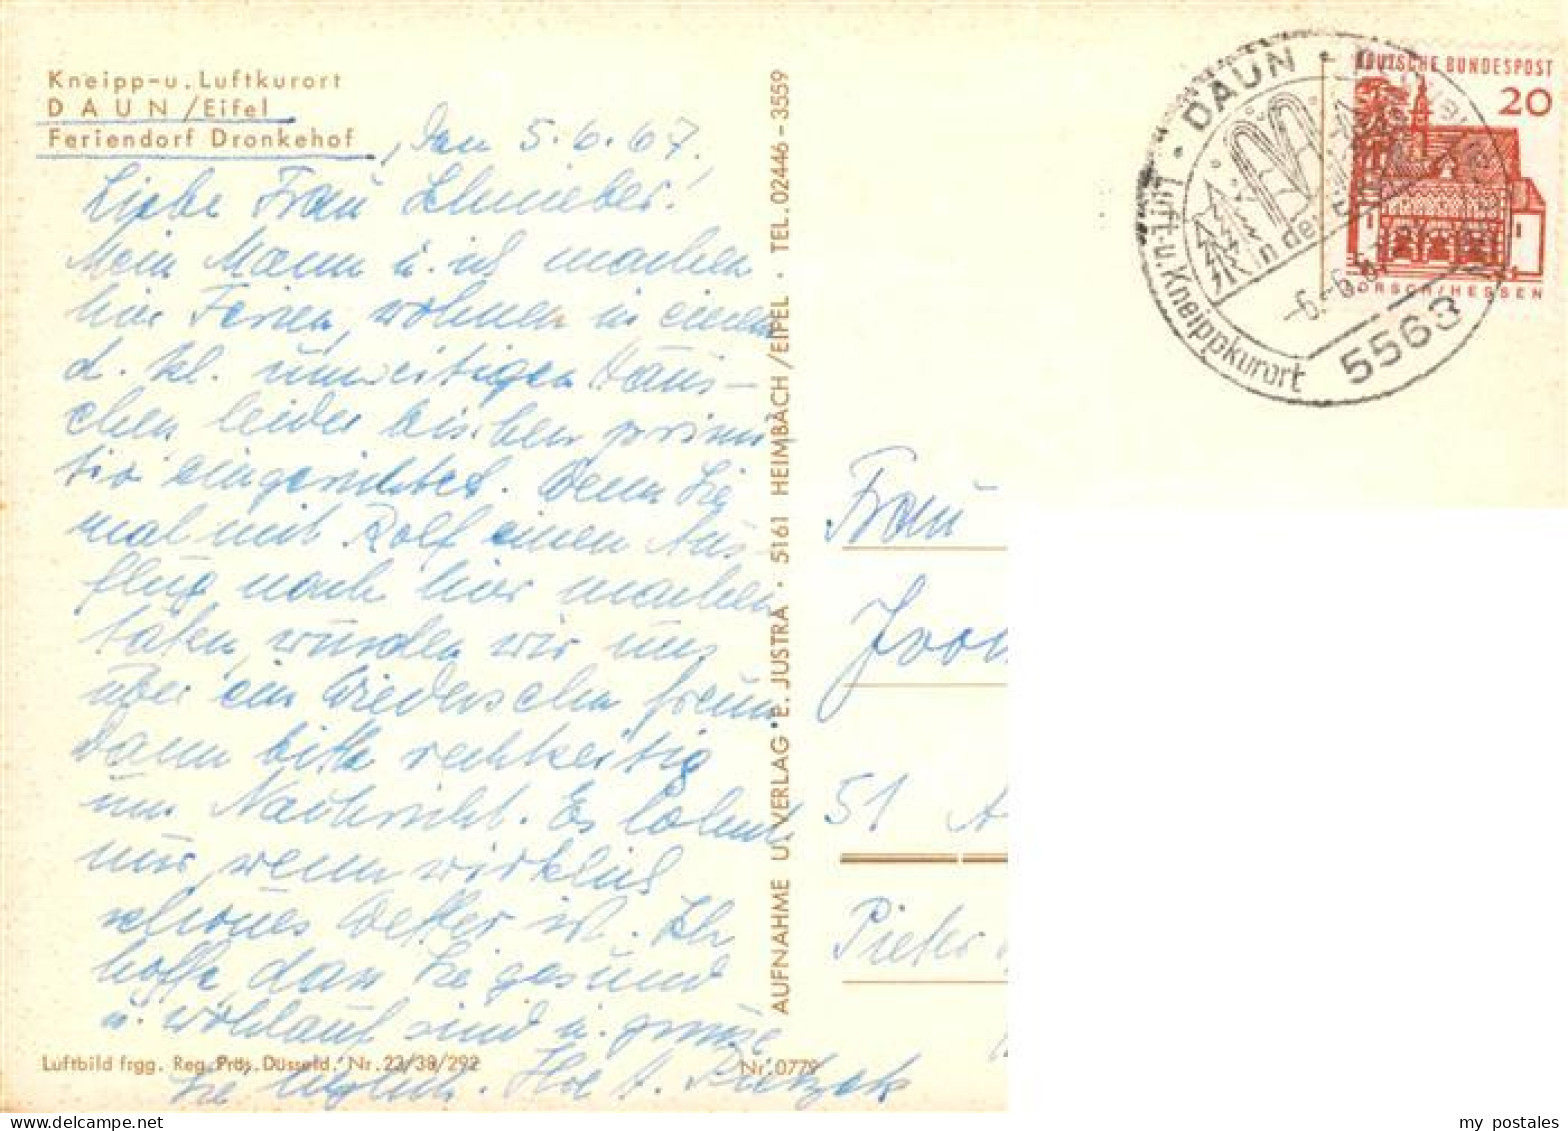 Kneipp-u. Luftkurort
DAUN/Eifel
Feriendorf Dronkehof, den 5.6.67.
Liebe Frau
Mein Mann u. ich machen
hier Ferien, wohnen in einem
d. kl. Häus-
chen leider bischen primi
tiv eingerichtet. Wenn Sie
mal mit Rolf einen Aus-
flug nach hier machen
täten, würden wir uns
über ein Wiedersehn freun
Dann bitte rechtzeitig
um Nachricht. Es lohnt
nur, wenn wirklich
schönes Wetter ist. Ich
hoffe, dass Sie gesund
u. wohlauf sind u. grüsse
Sie herzlich. Ihre
Luftbild frgg. Reg. Präs. Düsseld. Nr. 23/38/292
Nr. 0779
AUFNAHME U. VERLAG E. JUSTRA · 5161 HEIMBACH/EIFEL · TEL. 02446-3559
DAUN
Luft-u. Kneippkurort
in der Eifel
-6.-6.67
5563
DEUTSCHE BUNDESPOST
20
LORSCH/HESSEN
Frau
51 A
Pieter
my postales